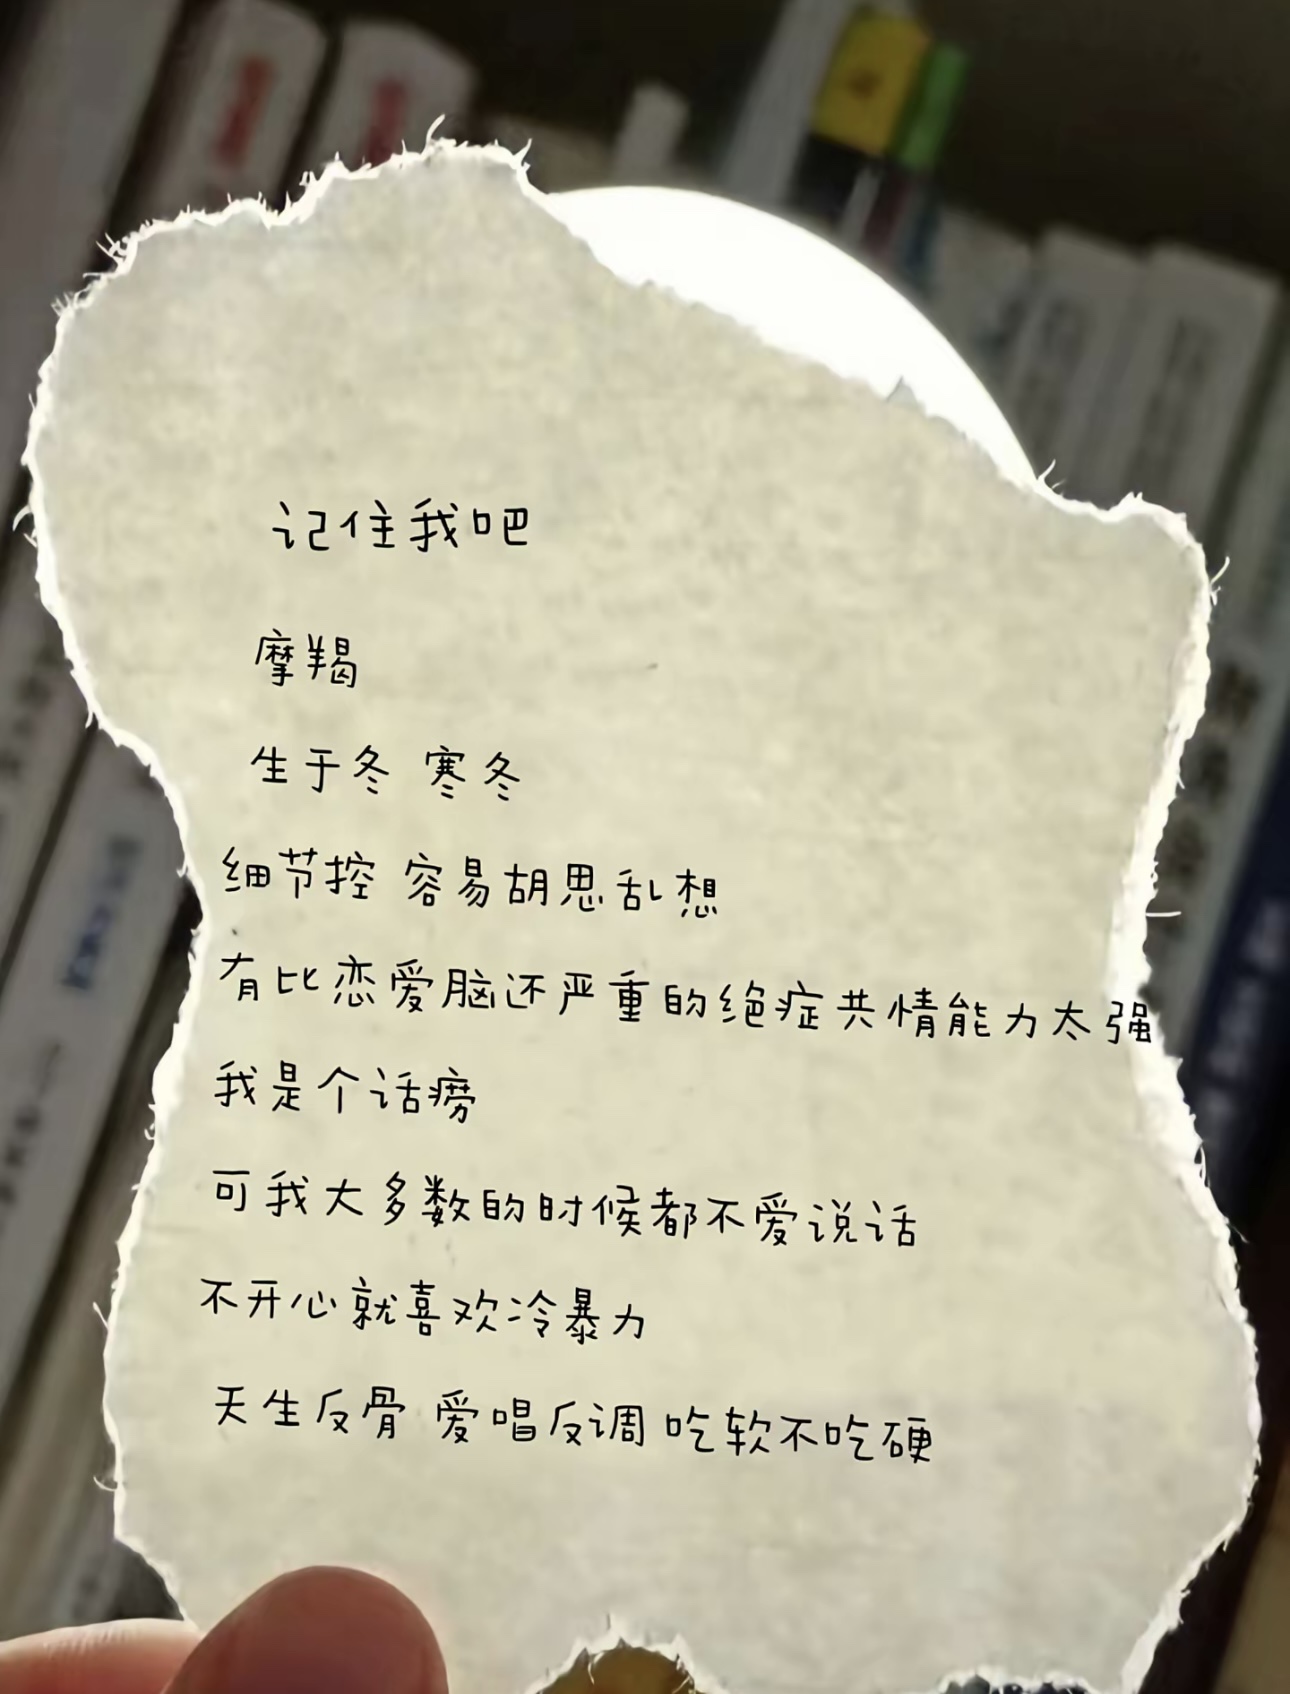 记住我吧
摩羯
生于冬 寒冬
细节控 容易胡思乱想
有比恋爱脑还严重的绝症共情能力太强
我是个话痨
可我大多数的时候都不爱说话
不开心就喜欢冷暴力
天生反骨 爱唱反调 吃软不吃硬